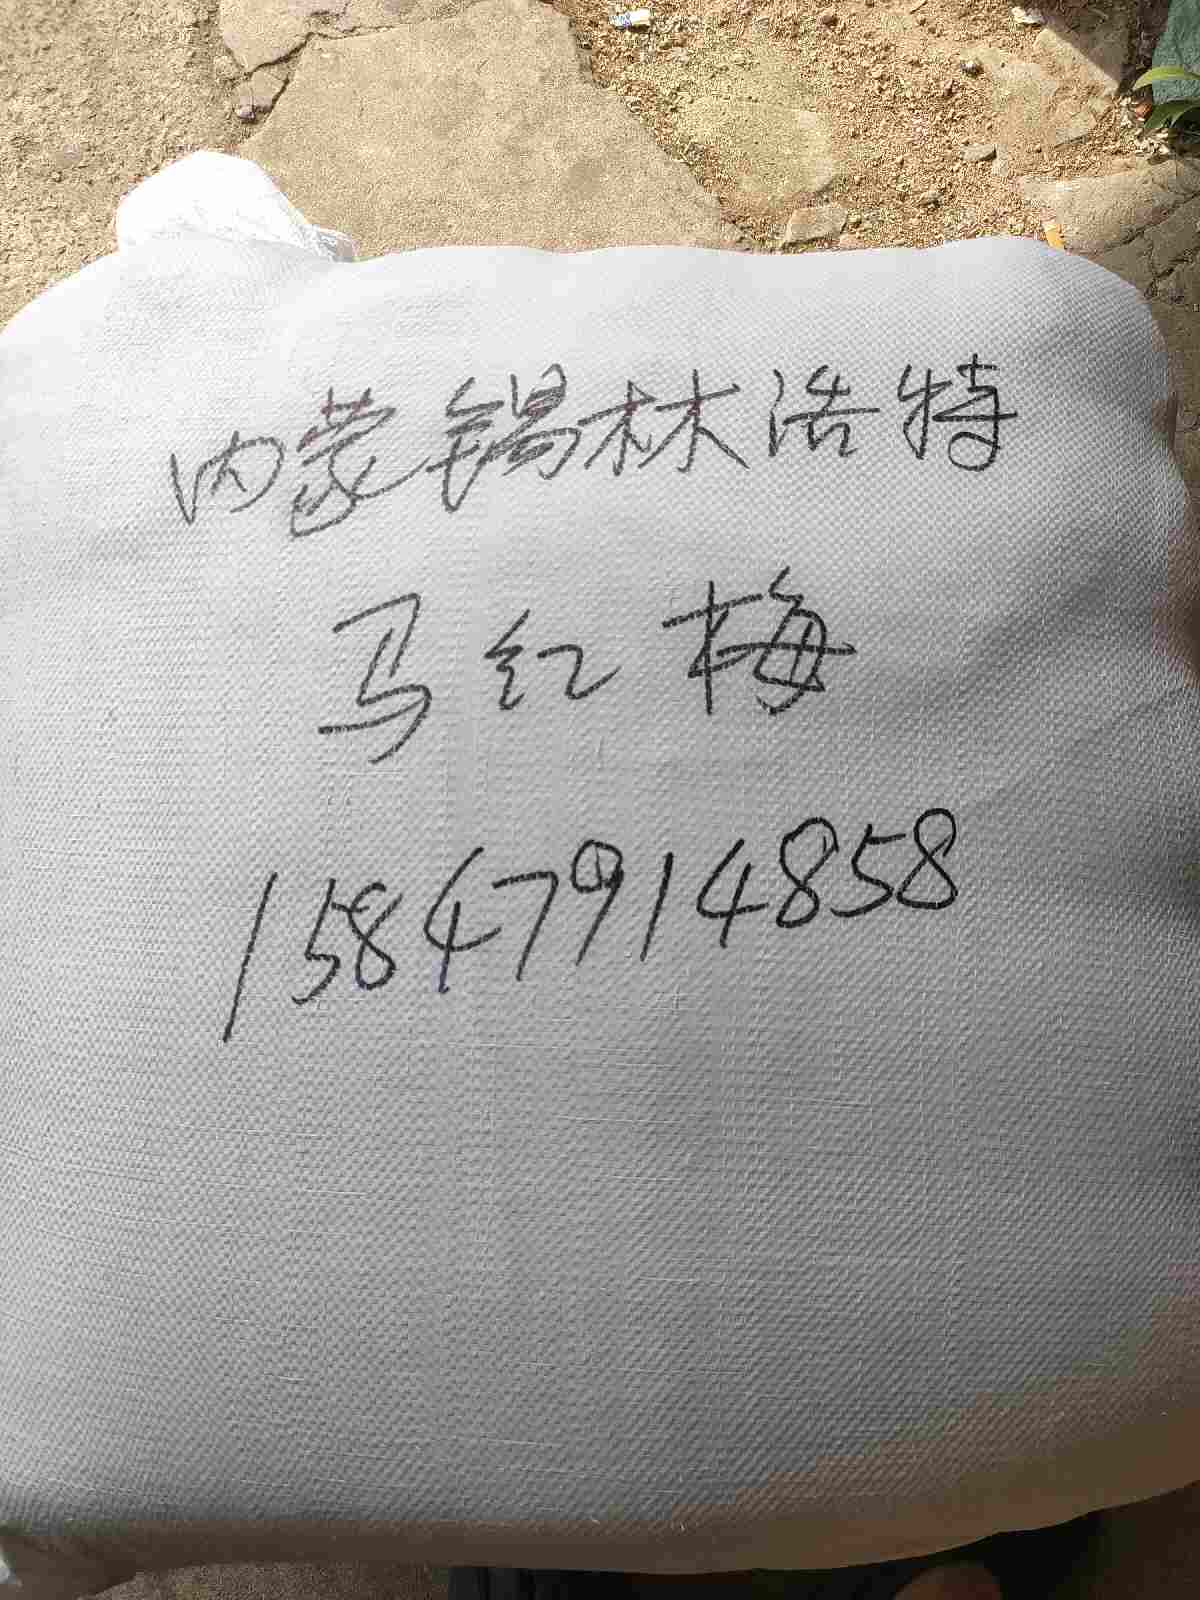 内蒙锡林浩特
马红梅
15847914858